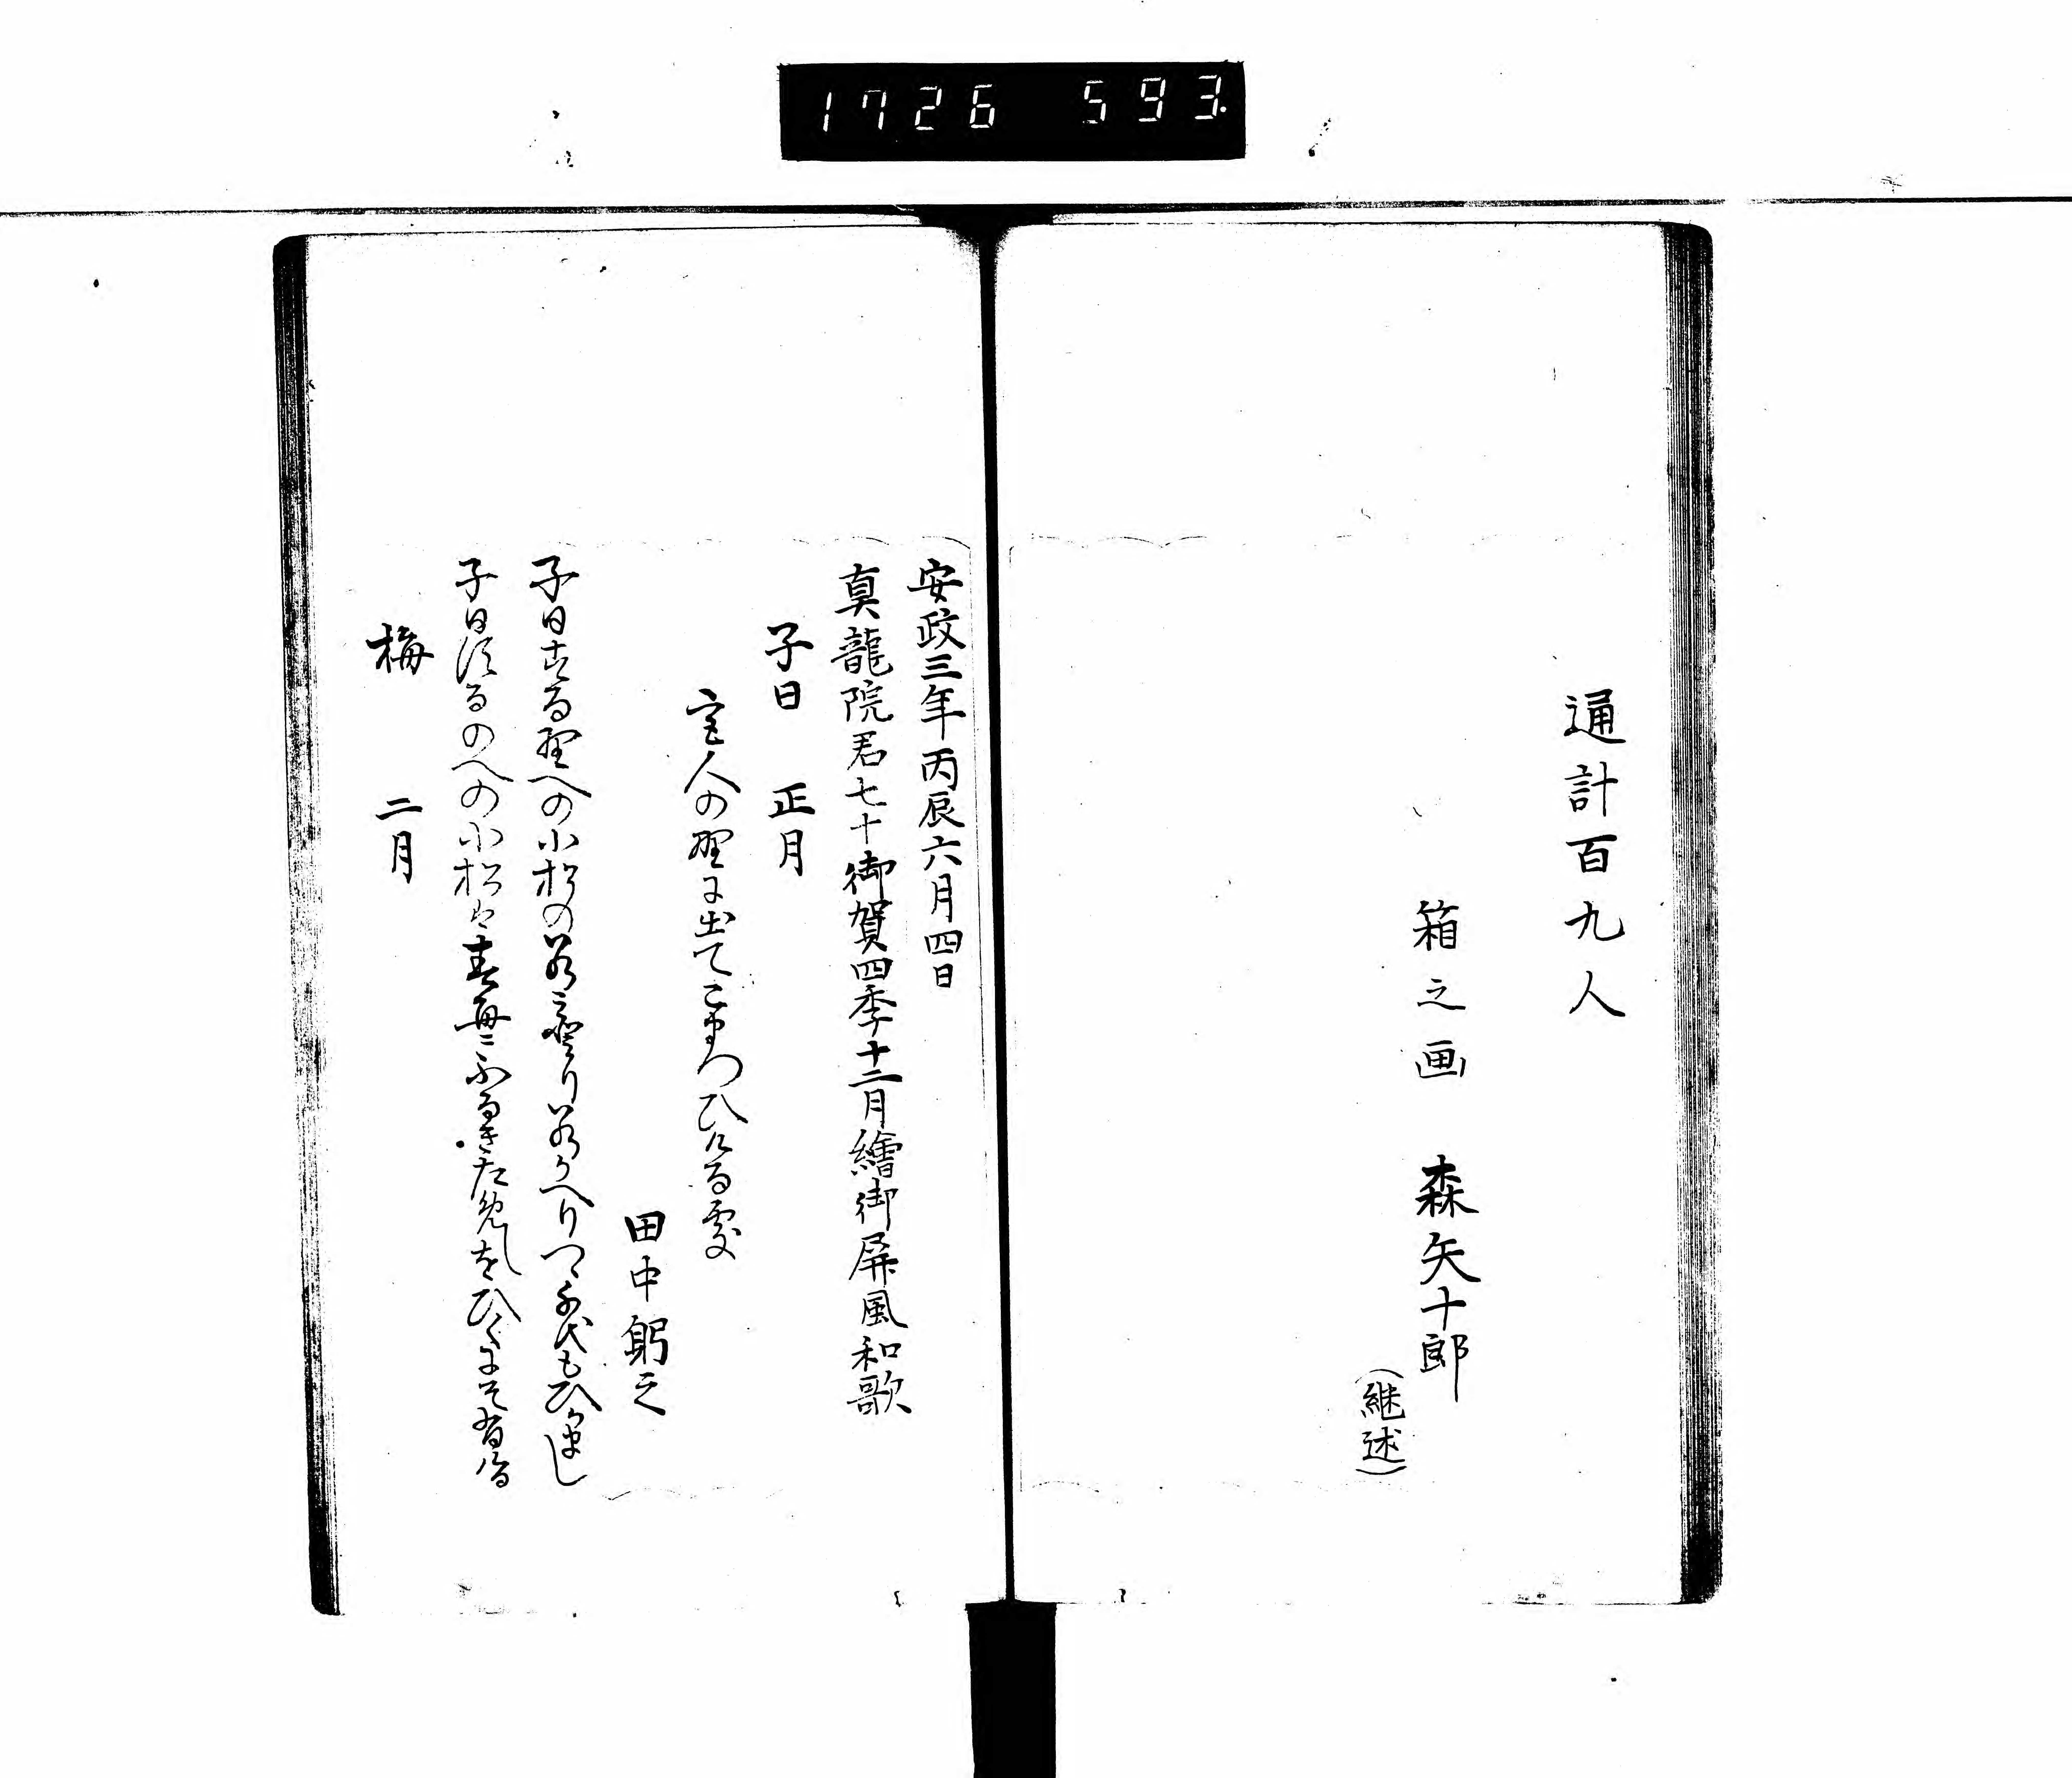 1726 593
通計百九人
箱之画 森矢十郎
(継述)
安政三年丙辰六月四日
真龍院君七十御賀四季十二月繪御屏風和歌
子日 正月
宮人の野に出てこまつひける處
田中躬之
子日する野への小松の若みとり若かへりつゝ千代もひかまし
子日するのへの小松は春毎にふるきためしをひくにそ有ける
梅 二月